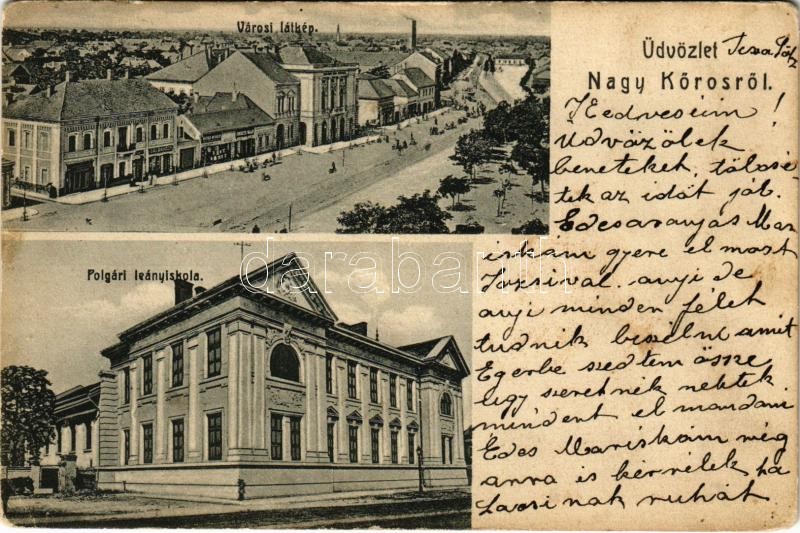 Városi látkép.
Üdvözlet
Nagy Kőrosről.
Polgári leányiskola.
darabanth
Kedveseim!
Üdvözölek
beneteket, töltsé
tek az időt jól.
Édesaranyás Mar
iskám gyere el most
Juzsival. anyi de
anyi minden félét
tudnék beszélni amit
Egerbe szedtem össze
úgy szeretnék nektek
mindent el mondani
Édes Mariskám még
arra is kérnélek ha
Lacsinak ruhát